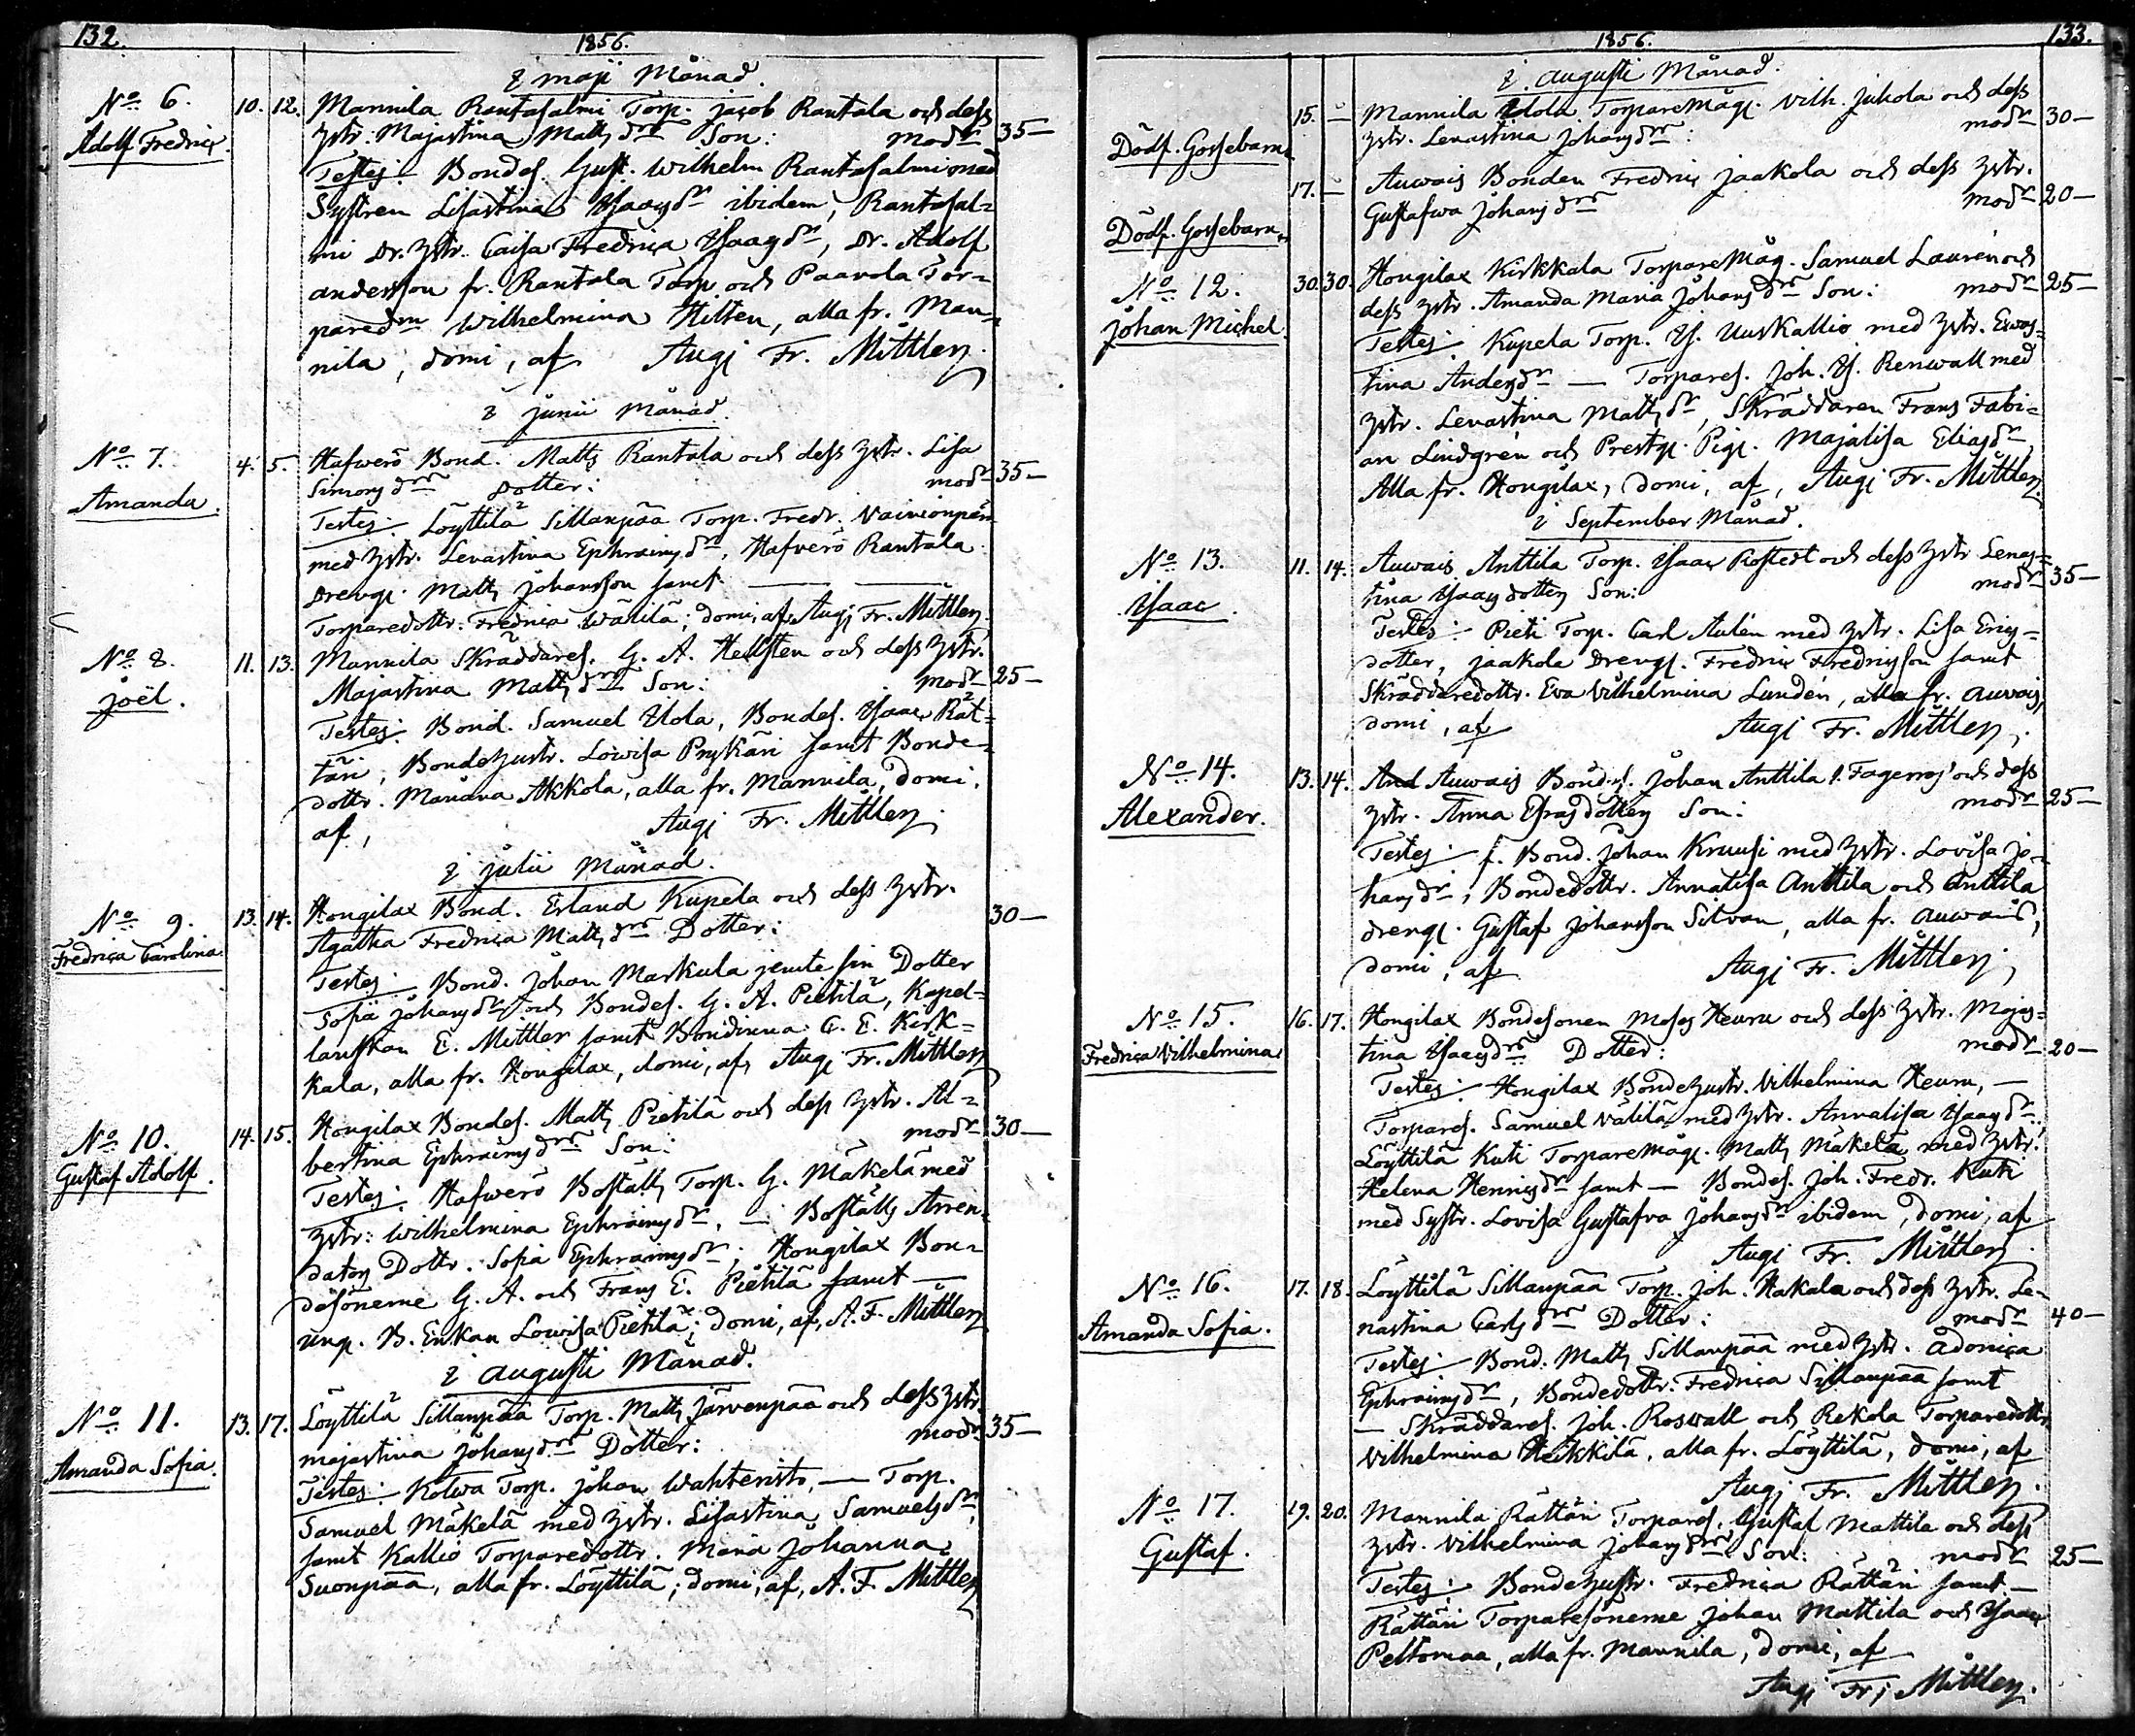 132.
1856.
i maji Månad.
No 6. 10. 12. Mannila Rantasalmi Torp. Jacob Rantala och dess
Adolf Fredric. hstr: Majastina Matts drr Son: modr 35—
Testes: Bondes. Gust. Wilhelm Rantasalmi med
Systren Lisastina Isaacs dr ibidem, Rantasal-
mi Dr. hstr. Caisa Fredrica Isaacs dr, Dr. Adolf
andersson fr. Rantala Torp och Paavola Tor-
paredm Wilhelmina Hitten, alla fr. Man-
nila, domi, af Augj Fr. Mittler.
i junii Månad.
No 7. 4. 5. Hafwerö Bond. Matts Rantala och dess hstr. Lisa
Amanda. Simons drr Dotter: modr 35—
Testes: Löyttilä Sillanpää Torp. Fredr. Vainionpää
med hstr. Lenastina Ephraims dr, Hafverö Rantala
Drengs. Matts Johansson samt — —
Torparedottr. Fredrica Wälilä; domi, af, Augj Fr. Mittler.
No 8. 11. 13. Mannila Skräddares. G. A. Hellsten och dess hstr.
Joël. Majastina Matts drr Son: modr 25—
Testes: Bond. Samuel Ylola, Bondes. Isaac Rät-
täri, Bondehustr. Lowisa Prykäri samt Bonde-
dottr. Mariana Akkola, alla fr. Mannila, domi,
af, Augj Fr. Mittler.
i julii Månad.
No 9. 13. 14. Hongilax Bond. Erland Kupela och dess hstr.
Fredrica Carolina. Agatha Fredrica Matts drr Dotter: 30—
Testes: Bond. Johan Markula jemte sin Dotter
Sofia Johans dr och Bondes. G. A. Pietilä, Kapel-
lanskan E. Mittler samt Bondinna C. E. Kirk-
kala, alla fr. Hongilax, domi, af, Augj Fr. Mittler
No 10. 14. 15. Hongilax Bondes. Matts Pietilä och dess hstr. Al-
Gustaf Adolf. bertina Ephraims drr Son: modr 30—
Testes: Hafwerö Boställs Torp. G. Mäkelä med
hstr: Wilhelmina Ephraims dr, — Boställs Arren-
dators Dottr. Sofia Ephraims dr; Hongilax Bon-
desönerne G. A. och Frans E. Pietilä samt —
ung. B. Enkan Lowisa Pietilä; domi, af, A. F. Mittler
i augusti Månad.
No 11. 13. 17. Löyttilä Sillanpää Torp. Matts Järvenpää och dess hstr.
Amanda Sofia. majastina Johans drr Dotter: modr 35—
Testes: Kolwa Torp. Johan Wahteristo, — Torp.
Samuel Mäkelä med hstr. Lisastina Samuels dr,
samt Kallio Torparedottr. Maria Johanna
Suonpää, alla fr. Löyttilä; domi, af, A. F. Mittler
1856.
133.
i augusti Månad.
15. — Mannila Ylola TorpareMåg. Vilh. Juhola och dess
Dödf. Gossebarn. hstr. Lenastina Johans drr: modr 30—
17. — Auwais Bonden Fredric Jaakola och dess hstr.
Dödf. Gossebarn. Gustafwa Johans drr modr 20—
No 12. 30. 30. Hongilax Kirkkala TorpareMåg. Samuel Laurén och
Johan Michel. dess hstr. Amanda Maria Johans drr Son: modr 25—
Testes: Kupela Torp. Is. Uuskallio med hstr. Evas-
tina Anders dr — Torpares. Joh. Is. Renwall med
hstr. Lenastina Matts dr, Skräddaren Frans Fabi-
an Lindgrén och Prestgs. Pigs. Majalisa Elias dr,
Alla fr. Hongilax, domi, af, Augj Fr. Mittler.
i September Månad.
No 13. 11. 14. Auwais Anttila Torp. Isaac Rostedt och dess hstr Lenas-
Isaac. tina Isaacs dotters Son: modr 35—
Testes: Pieti Torp. Carl Aulén med hstr. Lisa Erics-
dotter, Jaakola Drengs. Fredric Fredricsson samt
Skräddaredottr. Eva Vilhelmina Lundén, alla fr. Auvais,
domi, af Augj Fr. Mittler.
No 14. 13. 14. Auwais Bondes. Johan Anttila l. Fagerros och dess
Alexander. hstr. Anna Esras dotters Son: modr 25—
Testes: f. Bond. Johan Kruusi med hstr. Lovisa Jo-
hans dr, Bondedottr. Annalisa Anttila och Anttila
drengs. Gustaf Johansson Silvan, alla fr. Auwais,
domi, af Augj Fr. Mittler.
No 15. 16. 17. Hongilax Bondesonen Moses Heuru och dess hstr. Majas-
Fredrica Vilhelmina. tina Isaacs drr Dotter: modr 20—
Testes: Hongilax Bondehustr. Vilhelmina Heuru, —
Torpares. Samuel Välilä med hstr. Annalisa Isaacs dr
Löyttilä Kuti TorpareMågs. Matts Mäkelä med hstr.
Helena Henrics dr samt — Bondes. Joh. Fredr. Kuti
med Systr. Lovisa Gustafva Johans dr ibidem, domi, af
Augj Fr. Mittler.
No 16. 17. 18. Löyttilä Sillanpää Torp. Joh. Hakala och dess hstr. Le-
Amanda Sofia. nastina Carls drr Dotter: modr 40—
Testes: Bond. Matts Sillanpää med hstr. Adonica
Ephraims dr, Bondedottr. Fredrica Sillanpää samt
— Skräddares. Joh. Roswall och Rekola Torparedottr.
Vilhelmina Heikkilä, alla fr. Löyttilä, domi, af
Augj Fr. Mittler.
No 17. 19. 20. Mannila Rättäri Torpares. Gustaf Mattila och dess
Gustaf. hstr. Vilhelmina Johans drr Son: modr 25—
Testes: Bondehustr. Fredrica Rättäri samt —
Rättäri Torparesönerne Johan Mattila och Isaac
Peltomaa, alla fr. Mannila, domi, af
Augj Fr. Mittler.